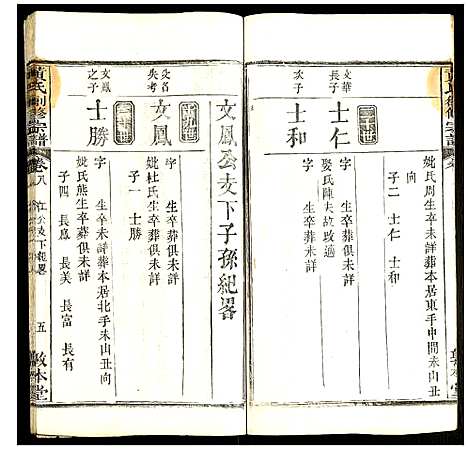 妣氏周生卒未詳葬本居東手中間未山丑
向
子二 士仁 士和
二十世
文華長子
士仁
字 生卒葬俱未詳
娶氏陳夫故改適
次子
士和
字 生卒葬俱未詳
文鳳公支下子孫紀畧
十九世
父名失考
文鳳
字 生卒葬俱未詳
妣杜氏生卒葬俱未詳
子一 士勝
二十世
文鳳之子
士勝
字 生卒未詳葬本居北手未山丑向
妣氏熊生卒葬俱未詳
子四 長恩 長美 長富 長有
黃氏創修宗譜
卷八
五
敦本堂